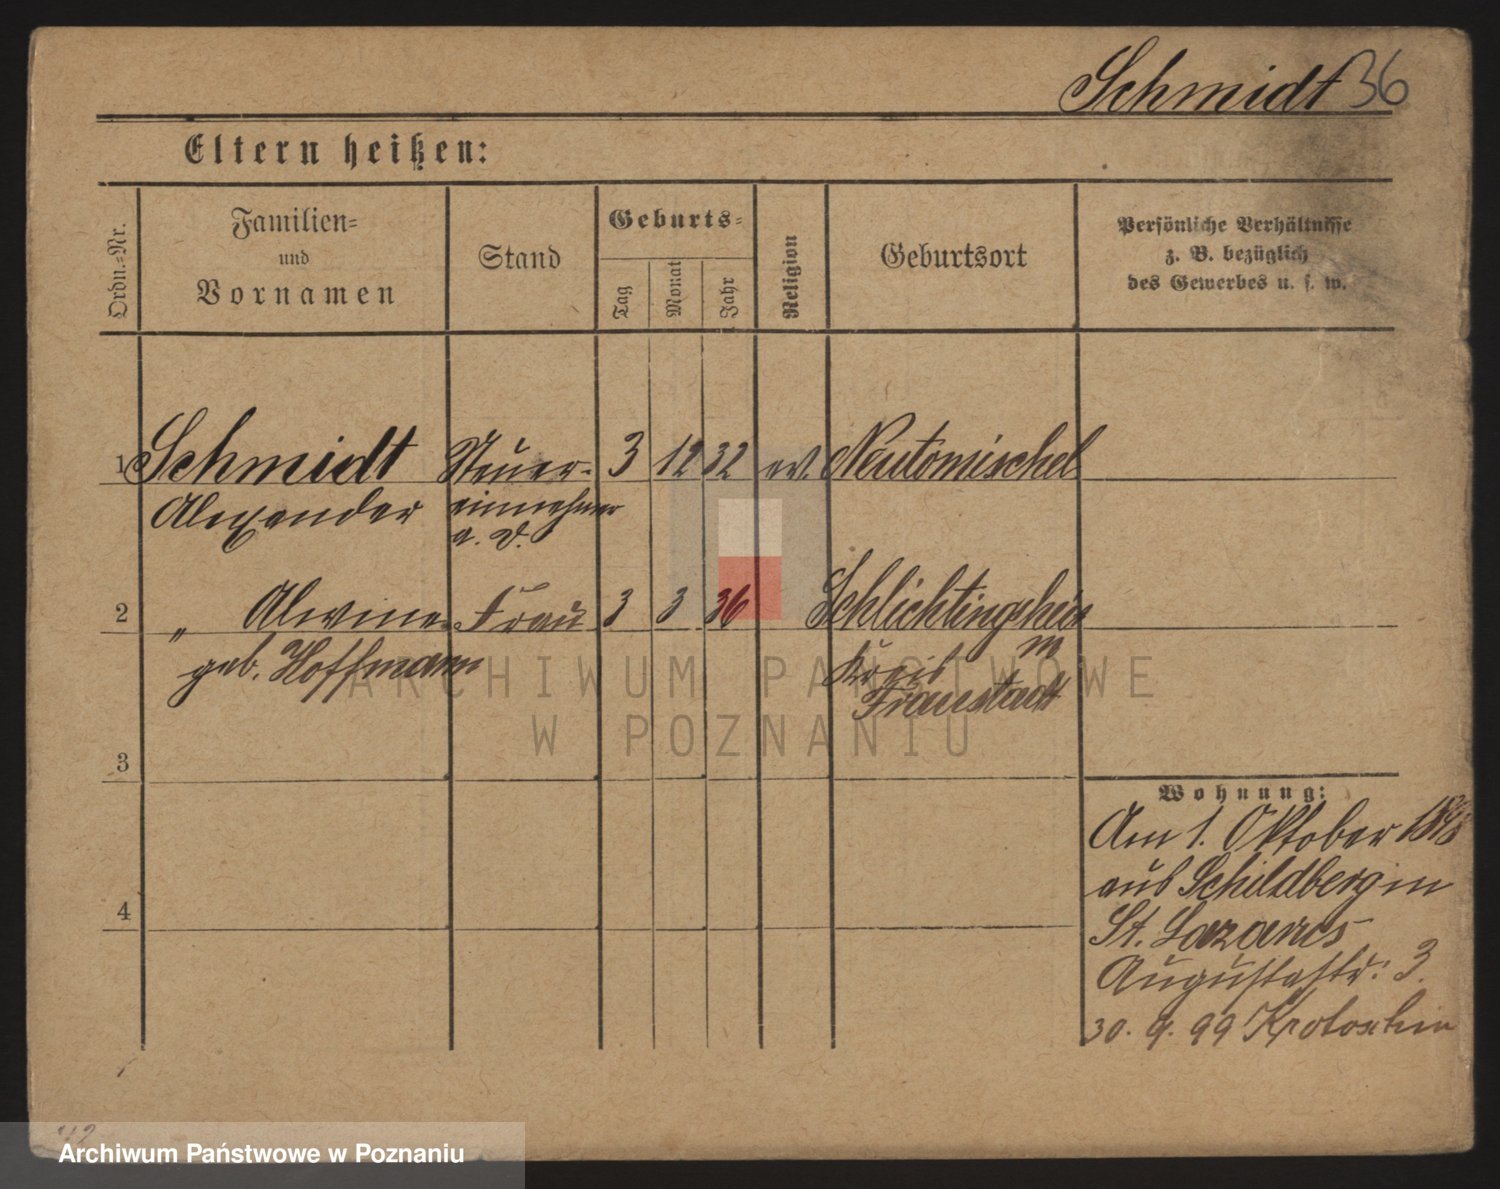 Schmidt 36
Eltern heißen:
Ordn.-Nr.
Familien-
und
Vornamen
Stand
Geburts-
Tag
Monat
Jahr
Religion
Geburtsort
Persönliche Verhältnisse
z. B. bezüglich
des Gewerbes u. s. w.
1 Schmidt Steuer- 3 12 32 ev. Neutomischel
Alexander einnehmer
a. D.
2 " Alwine Frau 3 3 36 Schlichtingshei
m
geb. Hoffmann Kreis
Fraustadt
3
4
Wohnung:
Am 1. Oktober 1898
aus Schildberg in
St. Lazarus
Augustastr: 3.
30. 9. 99 Krotoschin
ARCHIWUM PAŃSTWOWE
W POZNANIU
Archiwum Państwowe w Poznaniu